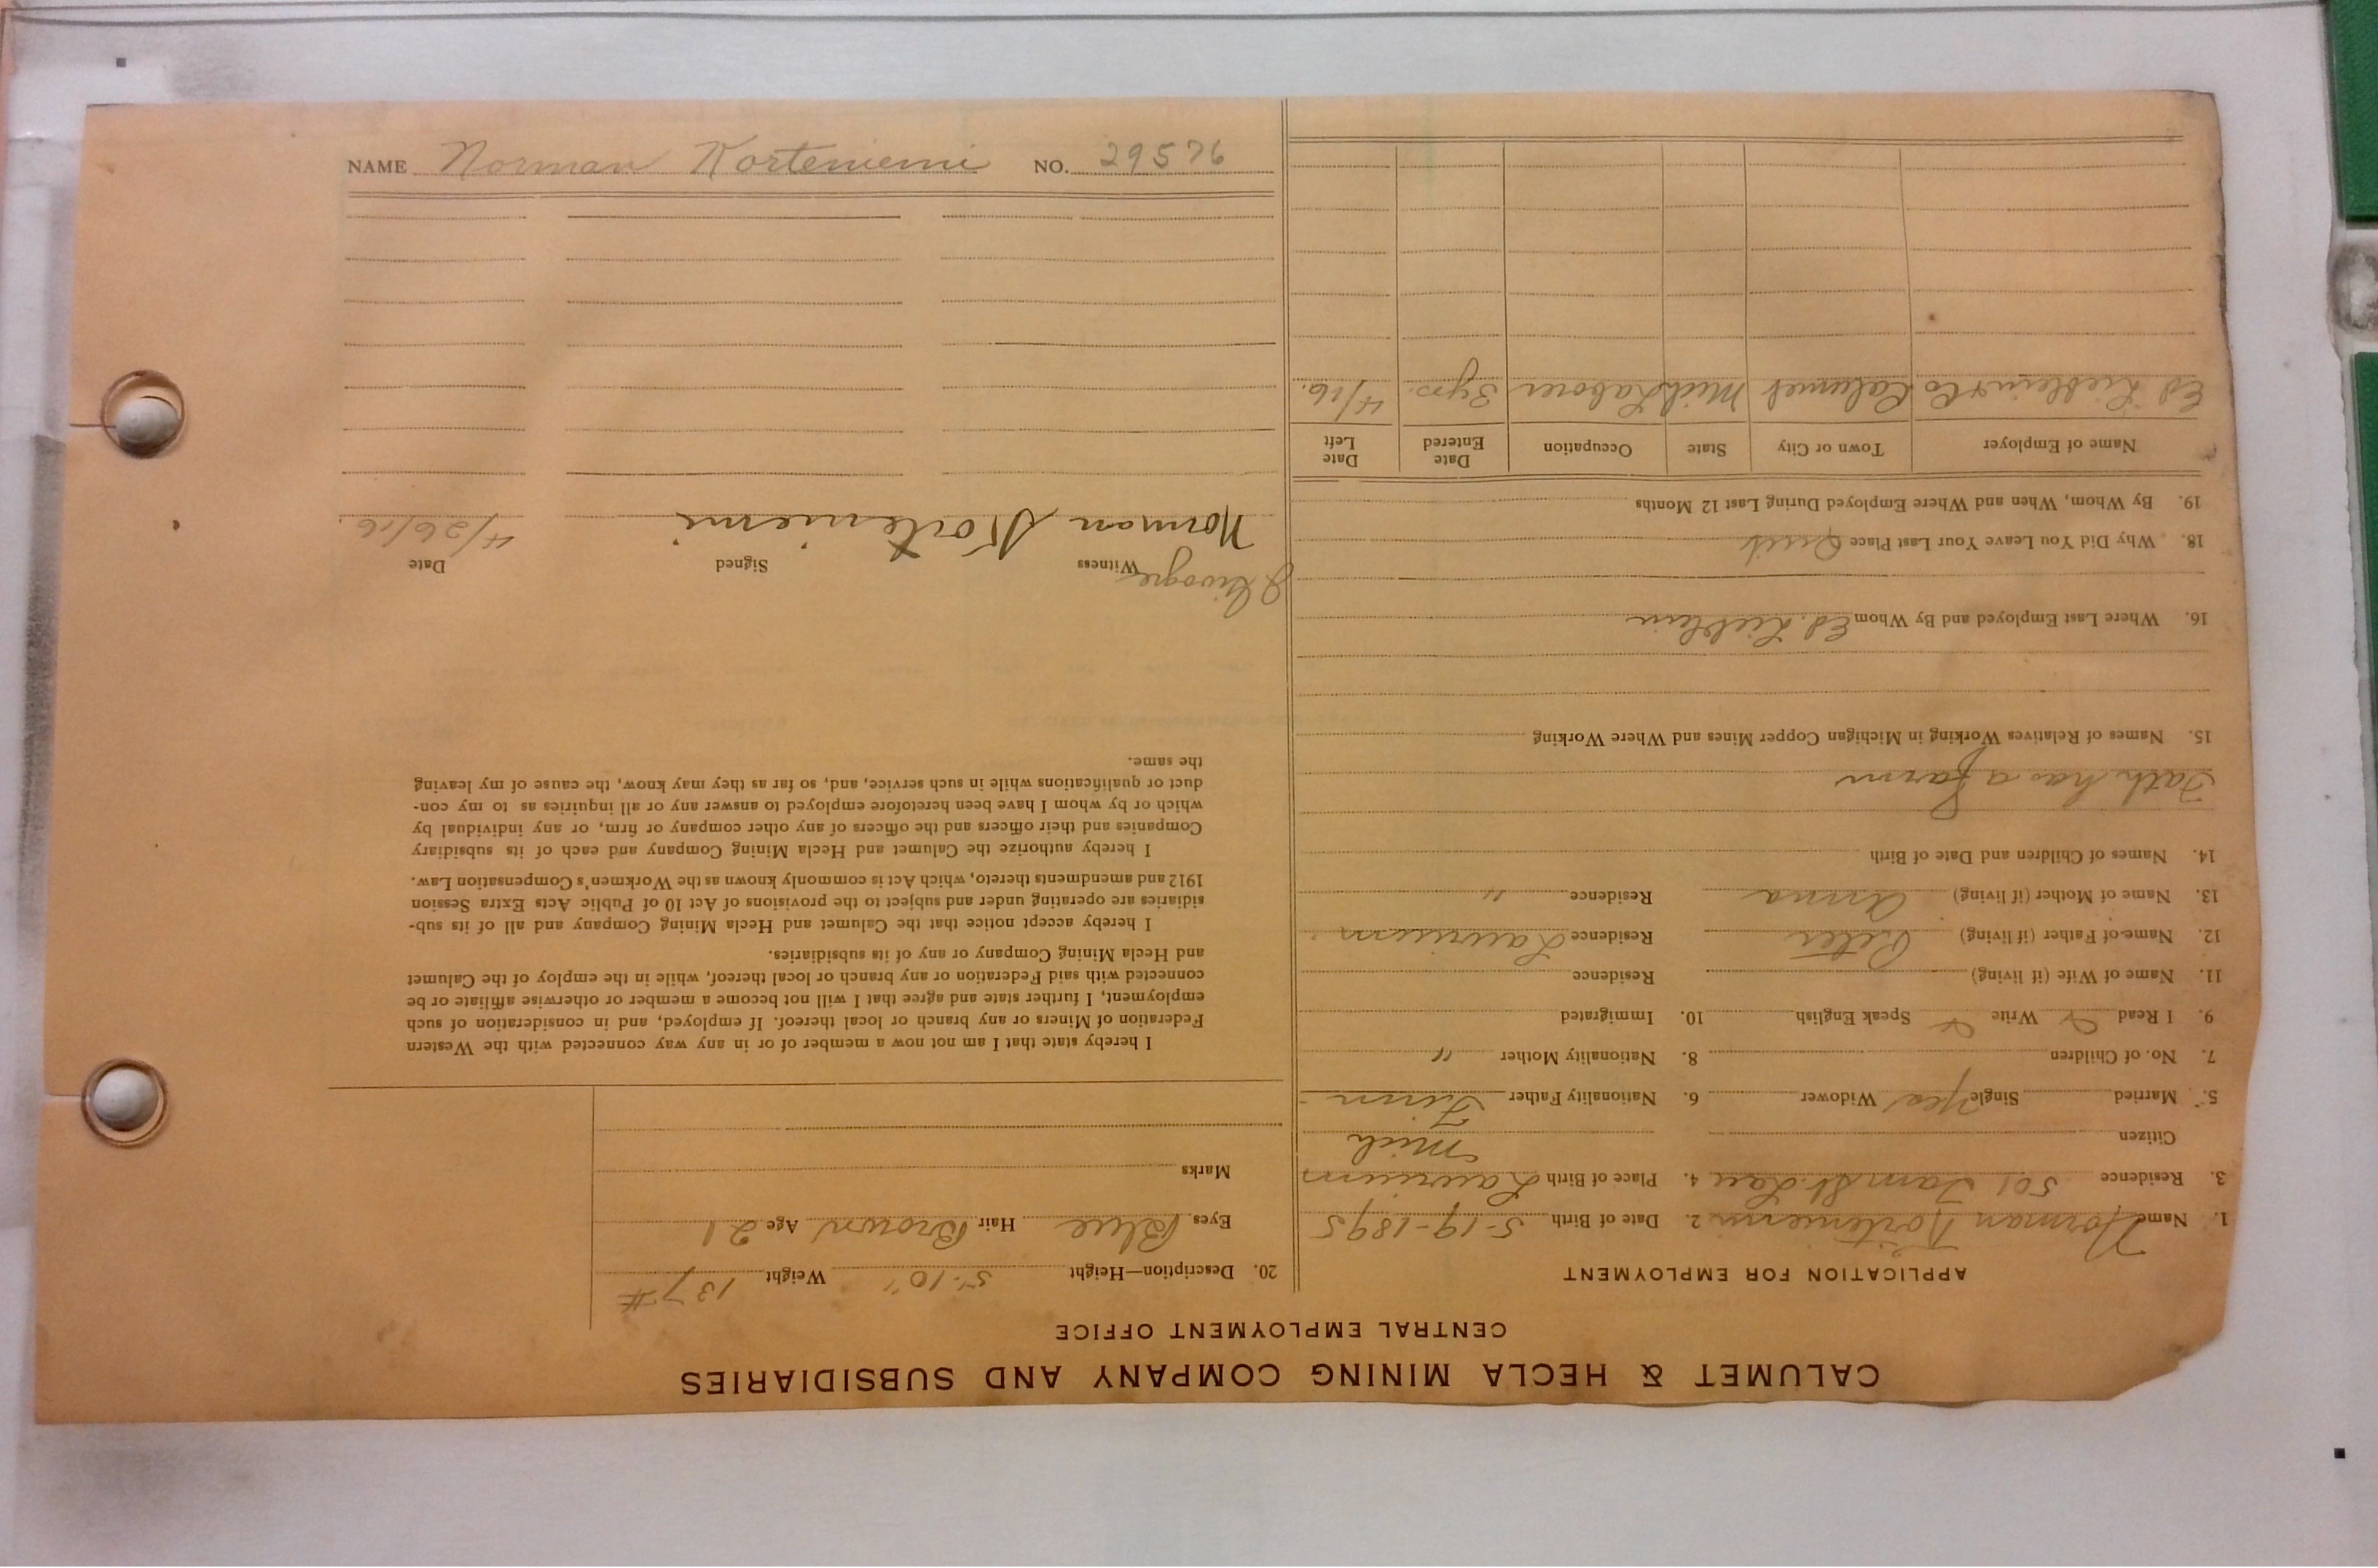 CALUMET & HECLA MINING COMPANY AND SUBSIDIARIES
CENTRAL EMPLOYMENT OFFICE
APPLICATION FOR EMPLOYMENT
1. Name Norman Korteniemi 2. Date of Birth 5-19-1895
3. Residence 501 Tam St. Lau 4. Place of Birth Laurium
Citizen Mich
5. Married Single Yes Widower 6. Nationality Father Finn
7. No. of Children 8. Nationality Mother "
9. I Read Write Speak English 10. Immigrated
11. Name of Wife (if living) Residence
12. Name of Father (if living) Peter Residence Laurium
13. Name of Mother (if living) Anna Residence "
14. Names of Children and Date of Birth
Fath has a farm
15. Names of Relatives Working in Michigan Copper Mines and Where Working
16. Where Last Employed and By Whom Ed. Lieblein
18. Why Did You Leave Your Last Place Quit
19. By Whom, When and Where Employed During Last 12 Months
Name of Employer Town or City State Occupation Date Entered Date Left
Ed Lieblein & Co Calumet Mich Laborer 3 yrs. 4/16.
20. Description—Height 5' 10" Weight 137 #
Eyes Blue Hair Brown Age 21
Marks
I hereby state that I am not now a member of or in any way connected with the Western
Federation of Miners or any branch or local thereof. If employed, and in consideration of such
employment, I further state and agree that I will not become a member or otherwise affiliate or be
connected with said Federation or any branch or local thereof, while in the employ of the Calumet
and Hecla Mining Company or any of its subsidiaries.
I hereby accept notice that the Calumet and Hecla Mining Company and all of its sub-
sidiaries are operating under and subject to the provisions of Act 10 of Public Acts Extra Session
1912 and amendments thereto, which Act is commonly known as the Workmen's Compensation Law.
I hereby authorize the Calumet and Hecla Mining Company and each of its subsidiary
Companies and their officers and the officers of any other company or firm, or any individual by
which or by whom I have been heretofore employed to answer any or all inquiries as to my con-
duct or qualifications while in such service, and, so far as they may know, the cause of my leaving
the same.
Witness Signed Date
Norman Korteniemi 4/26/16.
NAME Norman Korteniemi NO. 29576